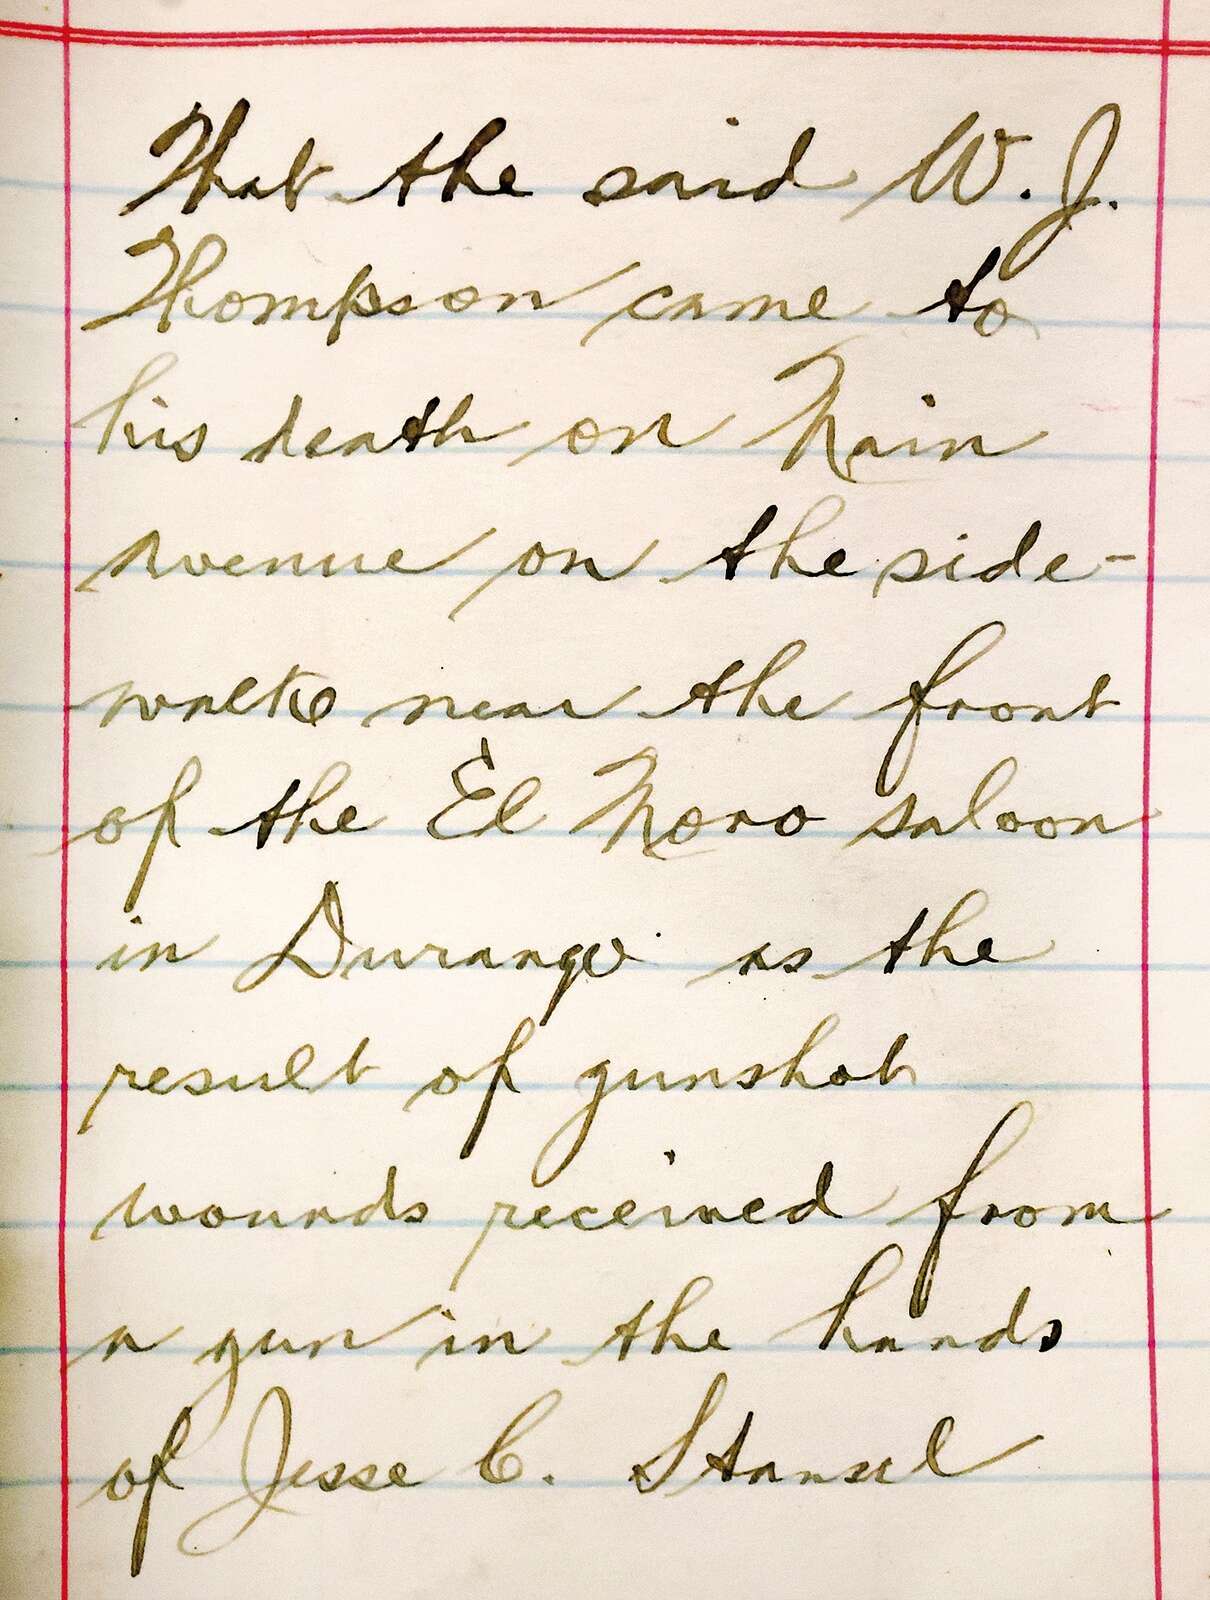 That the said W. J.
Thompson came to
his death on Main
avenue on the side-
walk near the front
of the El Moro saloon
in Durango as the
result of gunshot
wounds received from
a gun in the hands
of Jesse C. Stansel